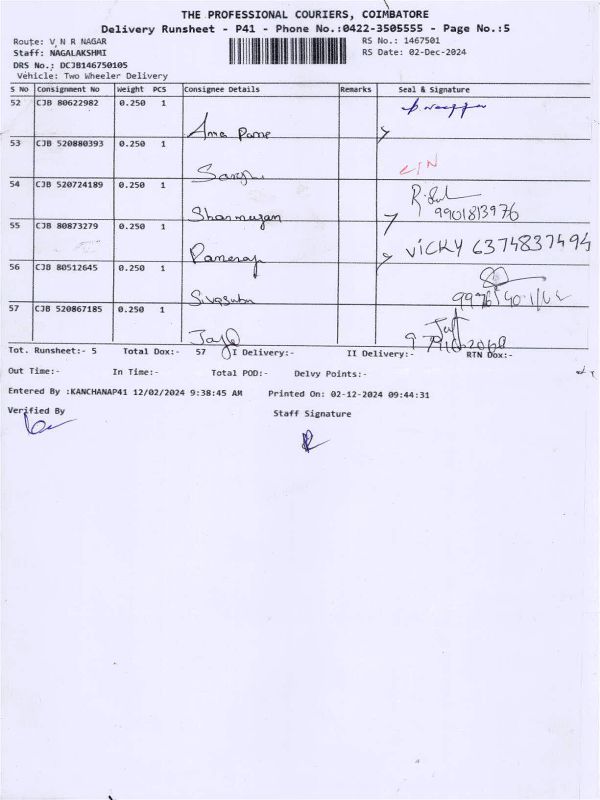 THE PROFESSIONAL COURIERS, COIMBATORE
Delivery Runsheet - P41 - Phone No.:0422-3505555 - Page No.:5
Route: V N R NAGAR RS No.: 1467501
Staff: NAGALAKSHMI RS Date: 02-Dec-2024
DRS No.: DCJB146750105
Vehicle: Two Wheeler Delivery
S No Consignment No Weight PCS Consignee Details Remarks Seal & Signature
52 CJB 80622982 0.250 1
53 CJB 520880393 0.250 1
54 CJB 520724189 0.250 1
Shanmugan 9901813976
55 CJB 80873279 0.250 1
VICKY 6374837494
56 CJB 80512645 0.250 1
57 CJB 520867185 0.250 1
Tot. Runsheet:- 5 Total Dox:- 57 I Delivery:- II Delivery:- RTN Dox:-
Out Time:- In Time:- Total POD:- Delvy Points:-
Entered By :KANCHANAP41 12/02/2024 9:38:45 AM Printed On: 02-12-2024 09:44:31
Verified By Staff Signature